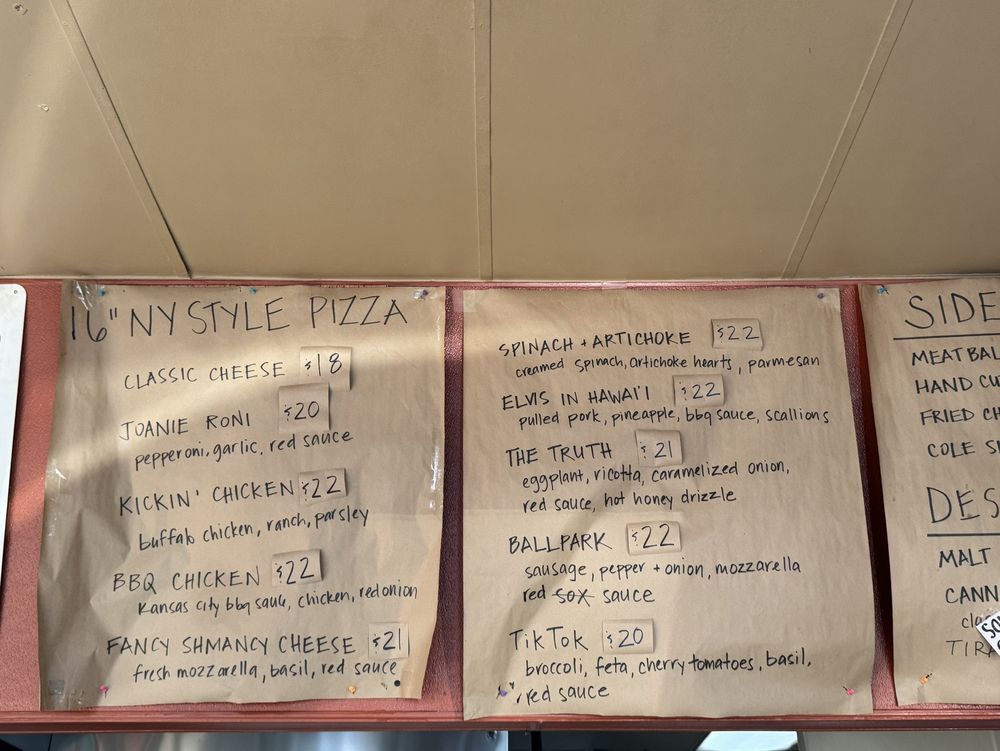 16" NY STYLE PIZZA
CLASSIC CHEESE $18
JOANIE RONI $20
pepperoni, garlic, red sauce
KICKIN' CHICKEN $22
buffalo chicken, ranch, parsley
BBQ CHICKEN $22
Kansas city bbq sauce, chicken, red onion
FANCY SHMANCY CHEESE $21
fresh mozzarella, basil, red sauce
SPINACH + ARTICHOKE $22
creamed spinach, artichoke hearts, parmesan
ELVIS IN HAWAI'I $22
pulled pork, pineapple, bbq sauce, scallions
THE TRUTH $21
eggplant, ricotta, caramelized onion,
red sauce, hot honey drizzle
BALLPARK $22
sausage, pepper + onion, mozzarella
red sox sauce
TikTok $20
broccoli, feta, cherry tomatoes, basil,
red sauce
SIDE
MEATBAL
HAND CU
FRIED CH
COLE S
DES
MALT
CANN